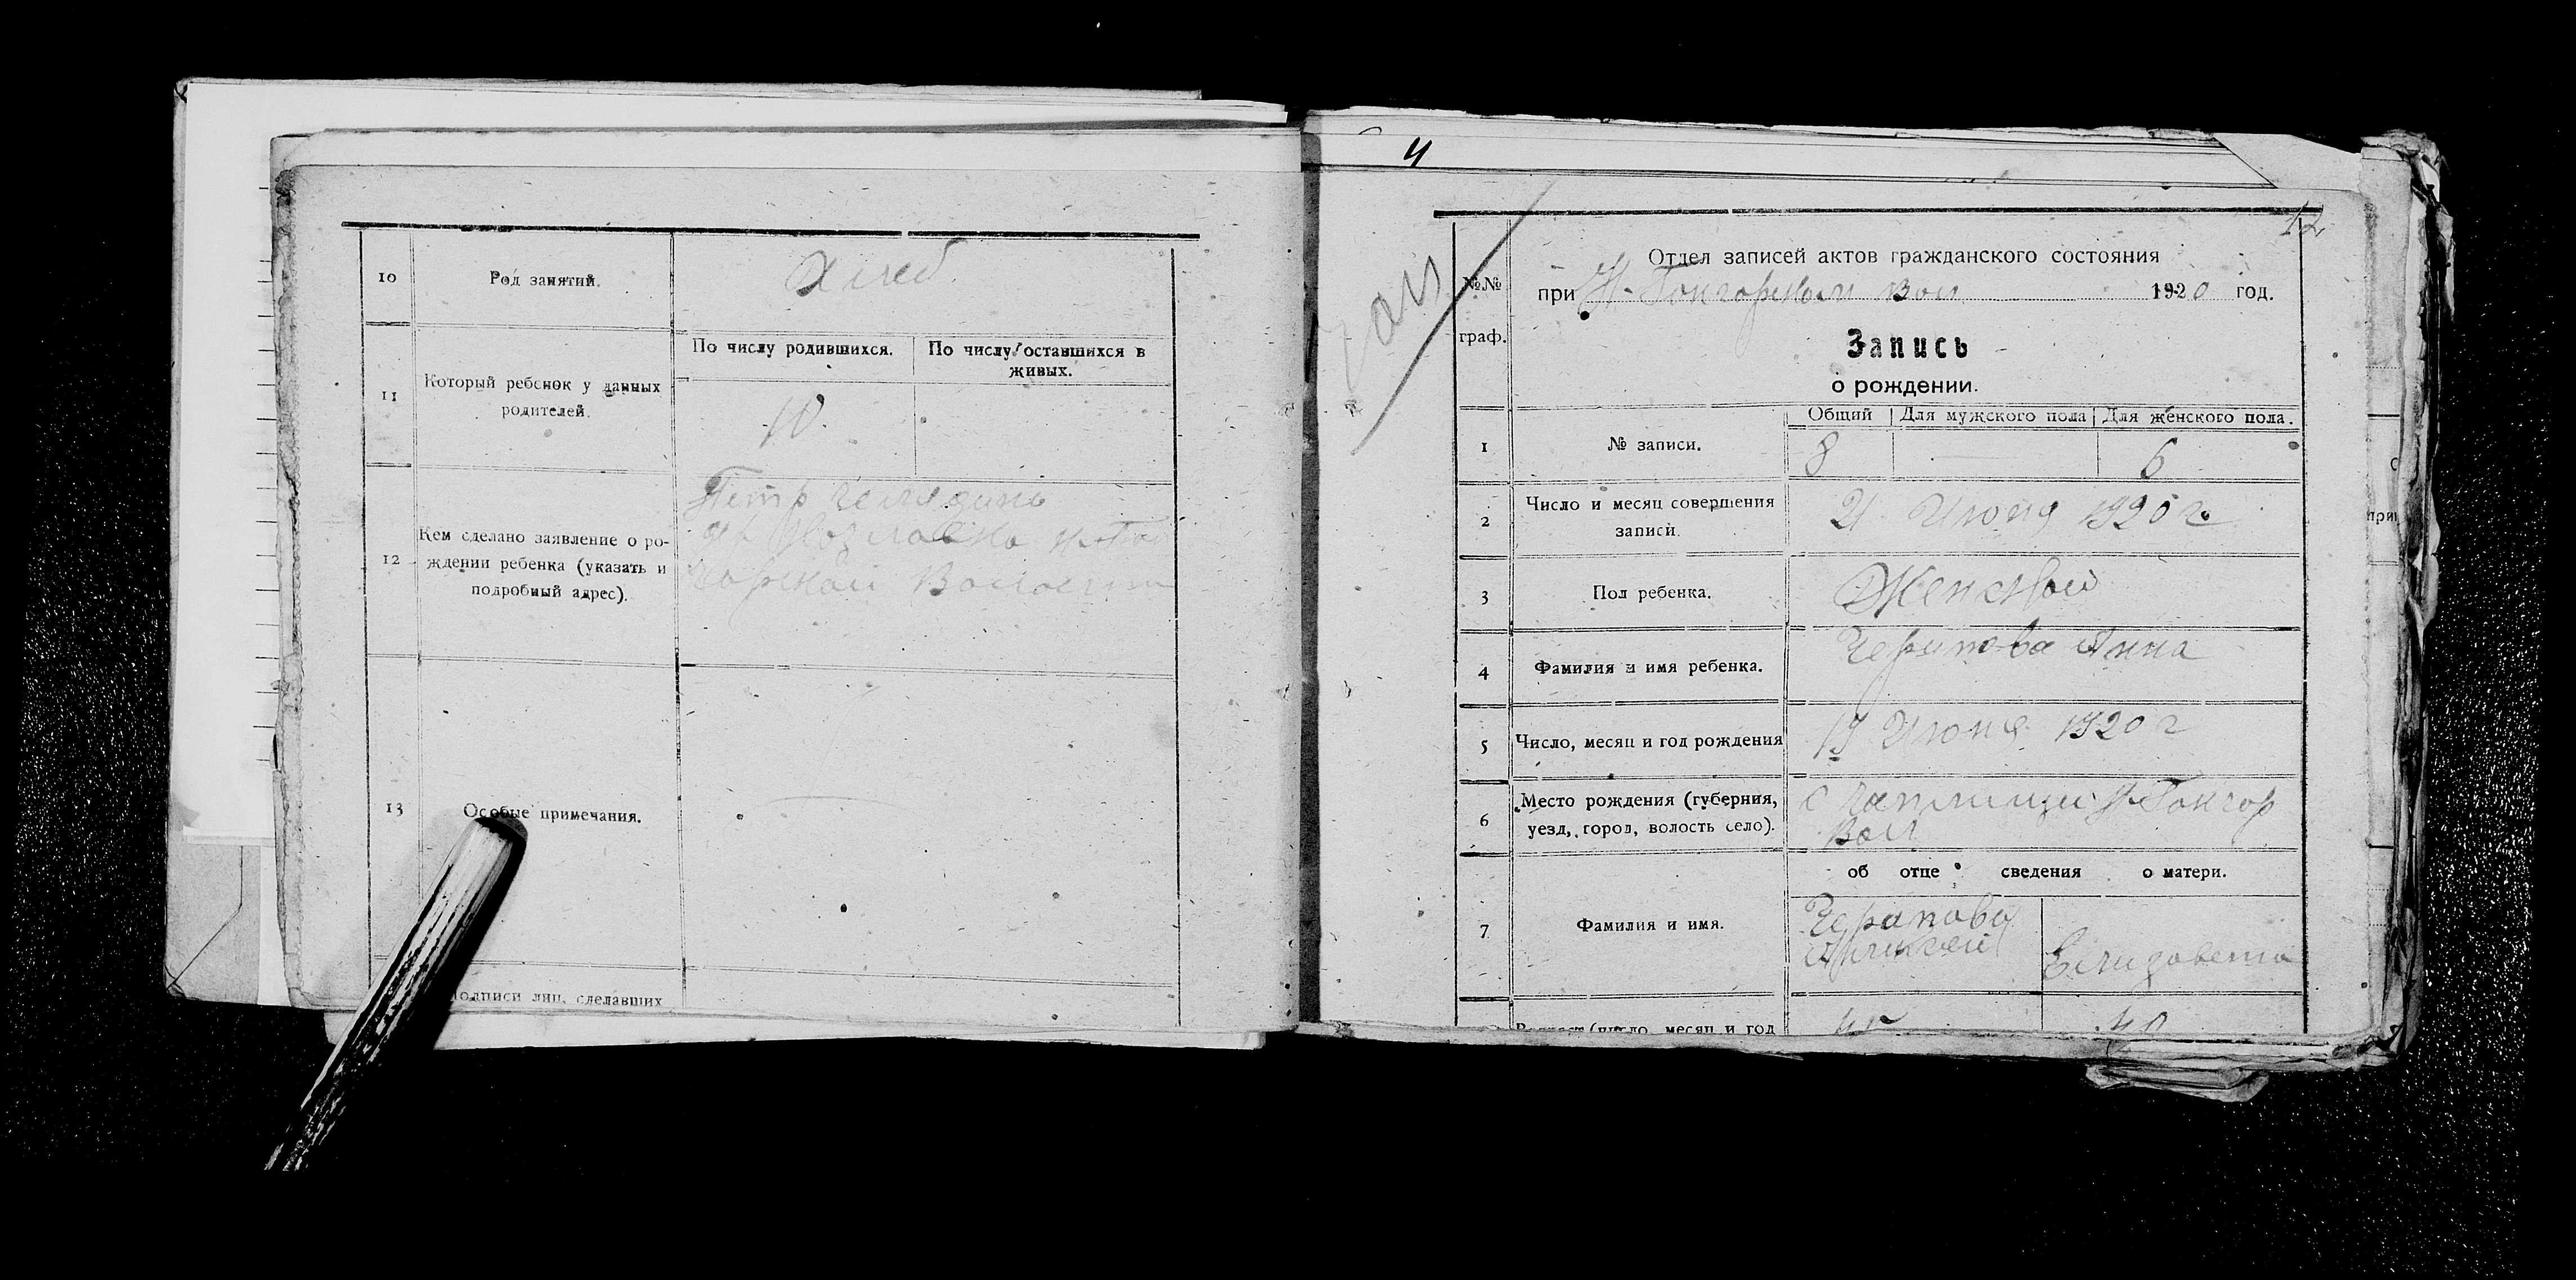 10
Род занятий.
Хлеб
11
Который ребенок у данных
родителей.
По числу родившихся.
По числу оставшихся в
живых.
10.
12
Кем сделано заявление о ро-
ждении ребенка (указать и
подробный адрес).
Петр
Волости
13
Особые примечания.
Подписи лиц, сделавших
4
12
№№
граф.
Отдел записей актов гражданского состояния
при Н. Гонгорском Вол 1920 год.
Запись
о рождении.
1
№ записи.
Общий
Для мужского пола
Для женского пола.
8
6
2
Число и месяц совершения
записи.
21 Июня 1920 г.
3
Пол ребенка.
Женской
4
Фамилия и имя ребенка.
Черепова Анна
5
Число, месяц и год рождения
Июня 1920 г
6
Место рождения (губерния,
уезд, город, волость село).
С Н-Гонгор
Вол
об отце сведения о матери.
7
Фамилия и имя.
Елизавета
Возраст (число, месяц и год
45
40